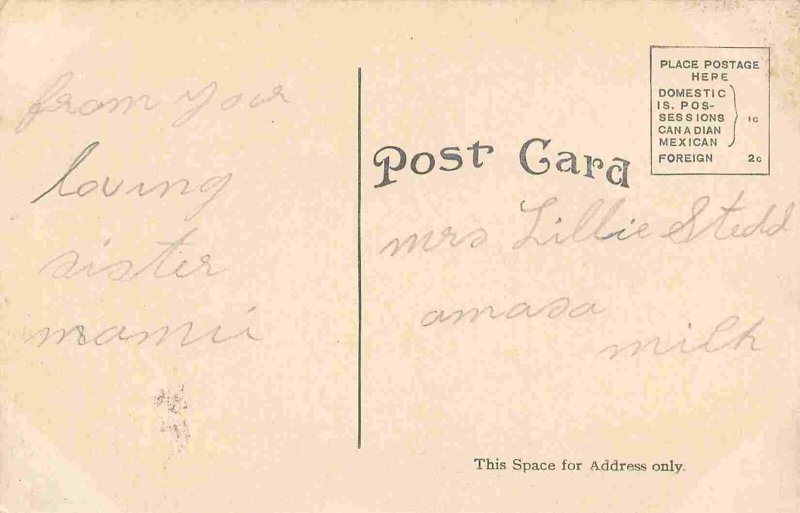 from your
loving
sister
mamie
PLACE POSTAGE
HERE
DOMESTIC
IS. POS-
SESSIONS
CANADIAN
MEXICAN
1c
FOREIGN 2c
Post Card
mrs Lillie Stedd
amasa
mich
This Space for Address only.